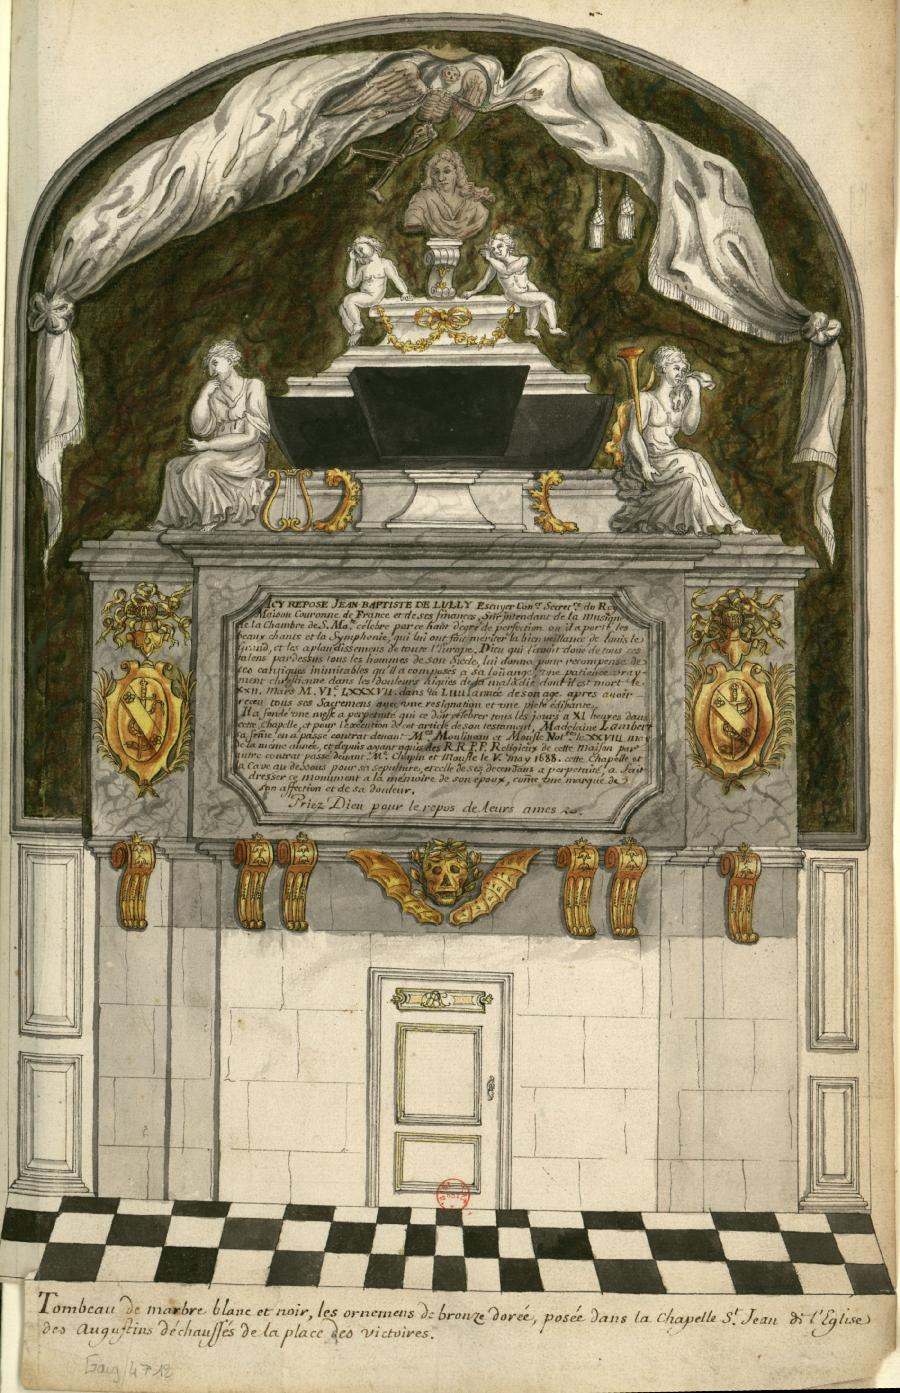 ICY REPOSE JEAN-BAPTISTE DE LULLY Escuyer Con.er Secret.re du Roy
Maison Couronne de France et de ses finances, Sur-intendant de la Musique
de la Chambre de S. Ma. celebre par ce haut degré de perfection où il a porté les
beaux chants et la Symphonie, qui lui ont fait mériter la bien veillance de Louis le
Grand, et les aplaudissemens de toute l'Europe. Dieu qui l'avoit doué de tous ces
talens par dessus tous les hommes de son Siécle, lui donna pour recompense de
ces cantiques inimitables qu'il a composés à sa loüange, une patience vray-
ment chrétienne dans les douleurs aigües de la maladie dont il est mort le
XXII. Mars M.VI.c LXXXVII. dans la année de son age, apres avoir
receu tous ses Sacremens avec une resignation et une pieté édifiante.
Il a fondé une messe a perpetuité qui ce doit célebrer tous les jours a XI heures dans
cette Chapelle, et pour l'exécution de cet article de son testament, Madelaine Lambert
sa feme en a passé contrat devant M.es Moulineau et Moufle Not.res le XXVIII may
de la même année, et depuis ayant aquis des R.R.P.P. Religieux de cette Maison par
autre contrat passé devant M.e Chupin et Moufle le V. may 1688. cette Chapelle et
la Cave au dessous pour sa sepulture, et celle de ses decendans a perpetuité, a fait
dresser ce monument a la mémoire de son epoux, come une marque de
son affection et de sa douleur.
Priez Dieu pour le repos de leurs ames
Tombeau de marbre blanc et noir, les ornemens de bronze dorée, posée dans la Chapelle S.t Jean de l'Eglise
des Augustins déchaussés de la place des victoires.
Gaig